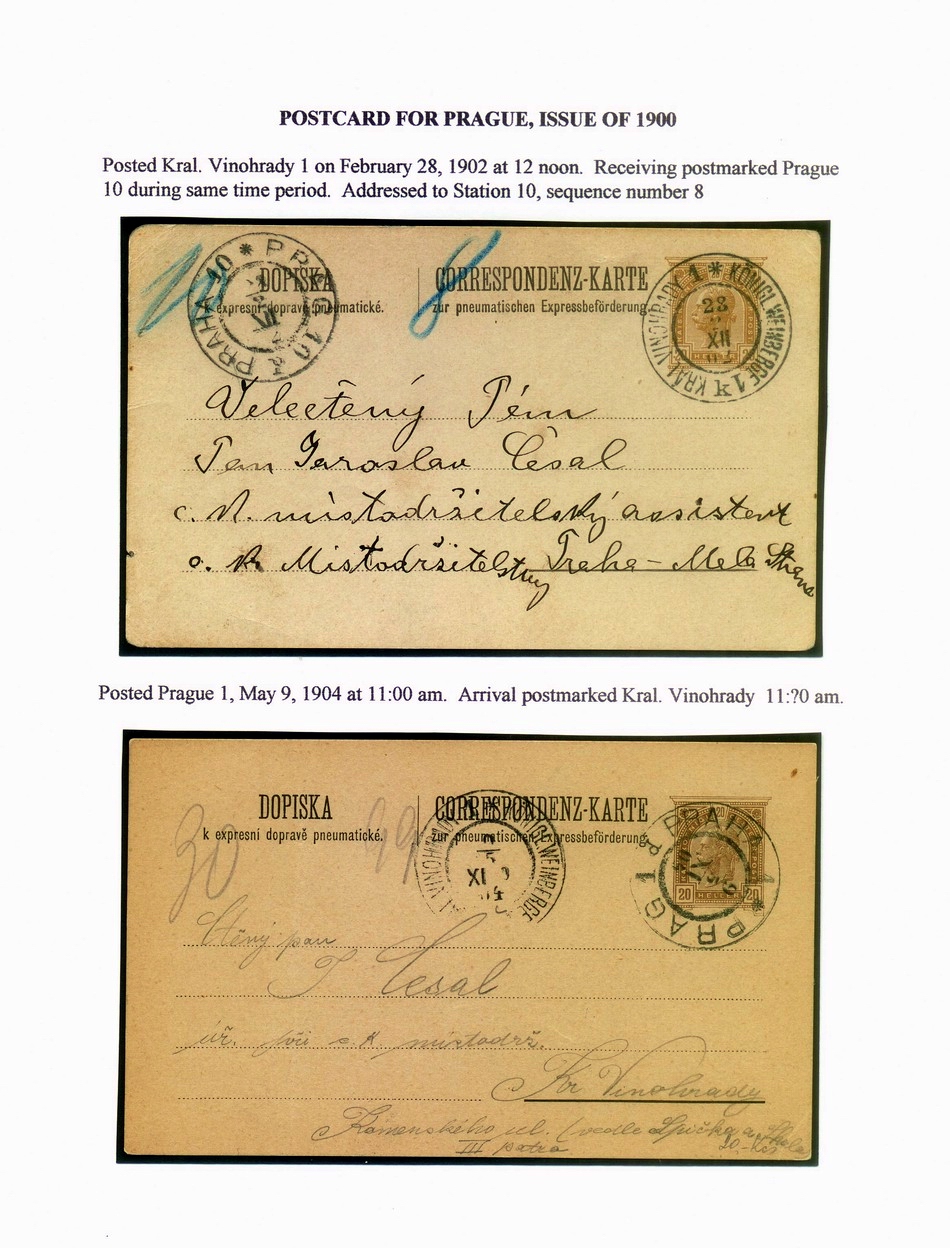 POSTCARD FOR PRAGUE, ISSUE OF 1900
Posted Kral. Vinohrady 1 on February 28, 1902 at 12 noon. Receiving postmarked Prague
10 during same time period. Addressed to Station 10, sequence number 8
10
8
PRAHA 10 * PRAG 10
DOPISKA
k expresní dopravě pneumatické.
CORRESPONDENZ-KARTE
zur pneumatischen Expressbeförderung.
KRÁL. VINOHRADY 1 * KÖNIGL. WEINBERGE 1
28
XII
Velectěný Pán
Pan Jaroslav Česal
c. k. místodržitelský assistent
c. k. Místodržitelství Praha - Malá Strana
Posted Prague 1, May 9, 1904 at 11:00 am. Arrival postmarked Kral. Vinohrady 11:?0 am.
DOPISKA
k expresní dopravě pneumatické.
CORRESPONDENZ-KARTE
zur pneumatischen Expressbeförderung.
30
VINOHRADY
WEINBERGE
XI
PRAHA 1 * PRAG 1
20 HELLER 20
Ctěný pan
J. Česal
úř. při c. k. místodrž.
Kr. Vinohrady
Komenského ul. (vedle
III patro